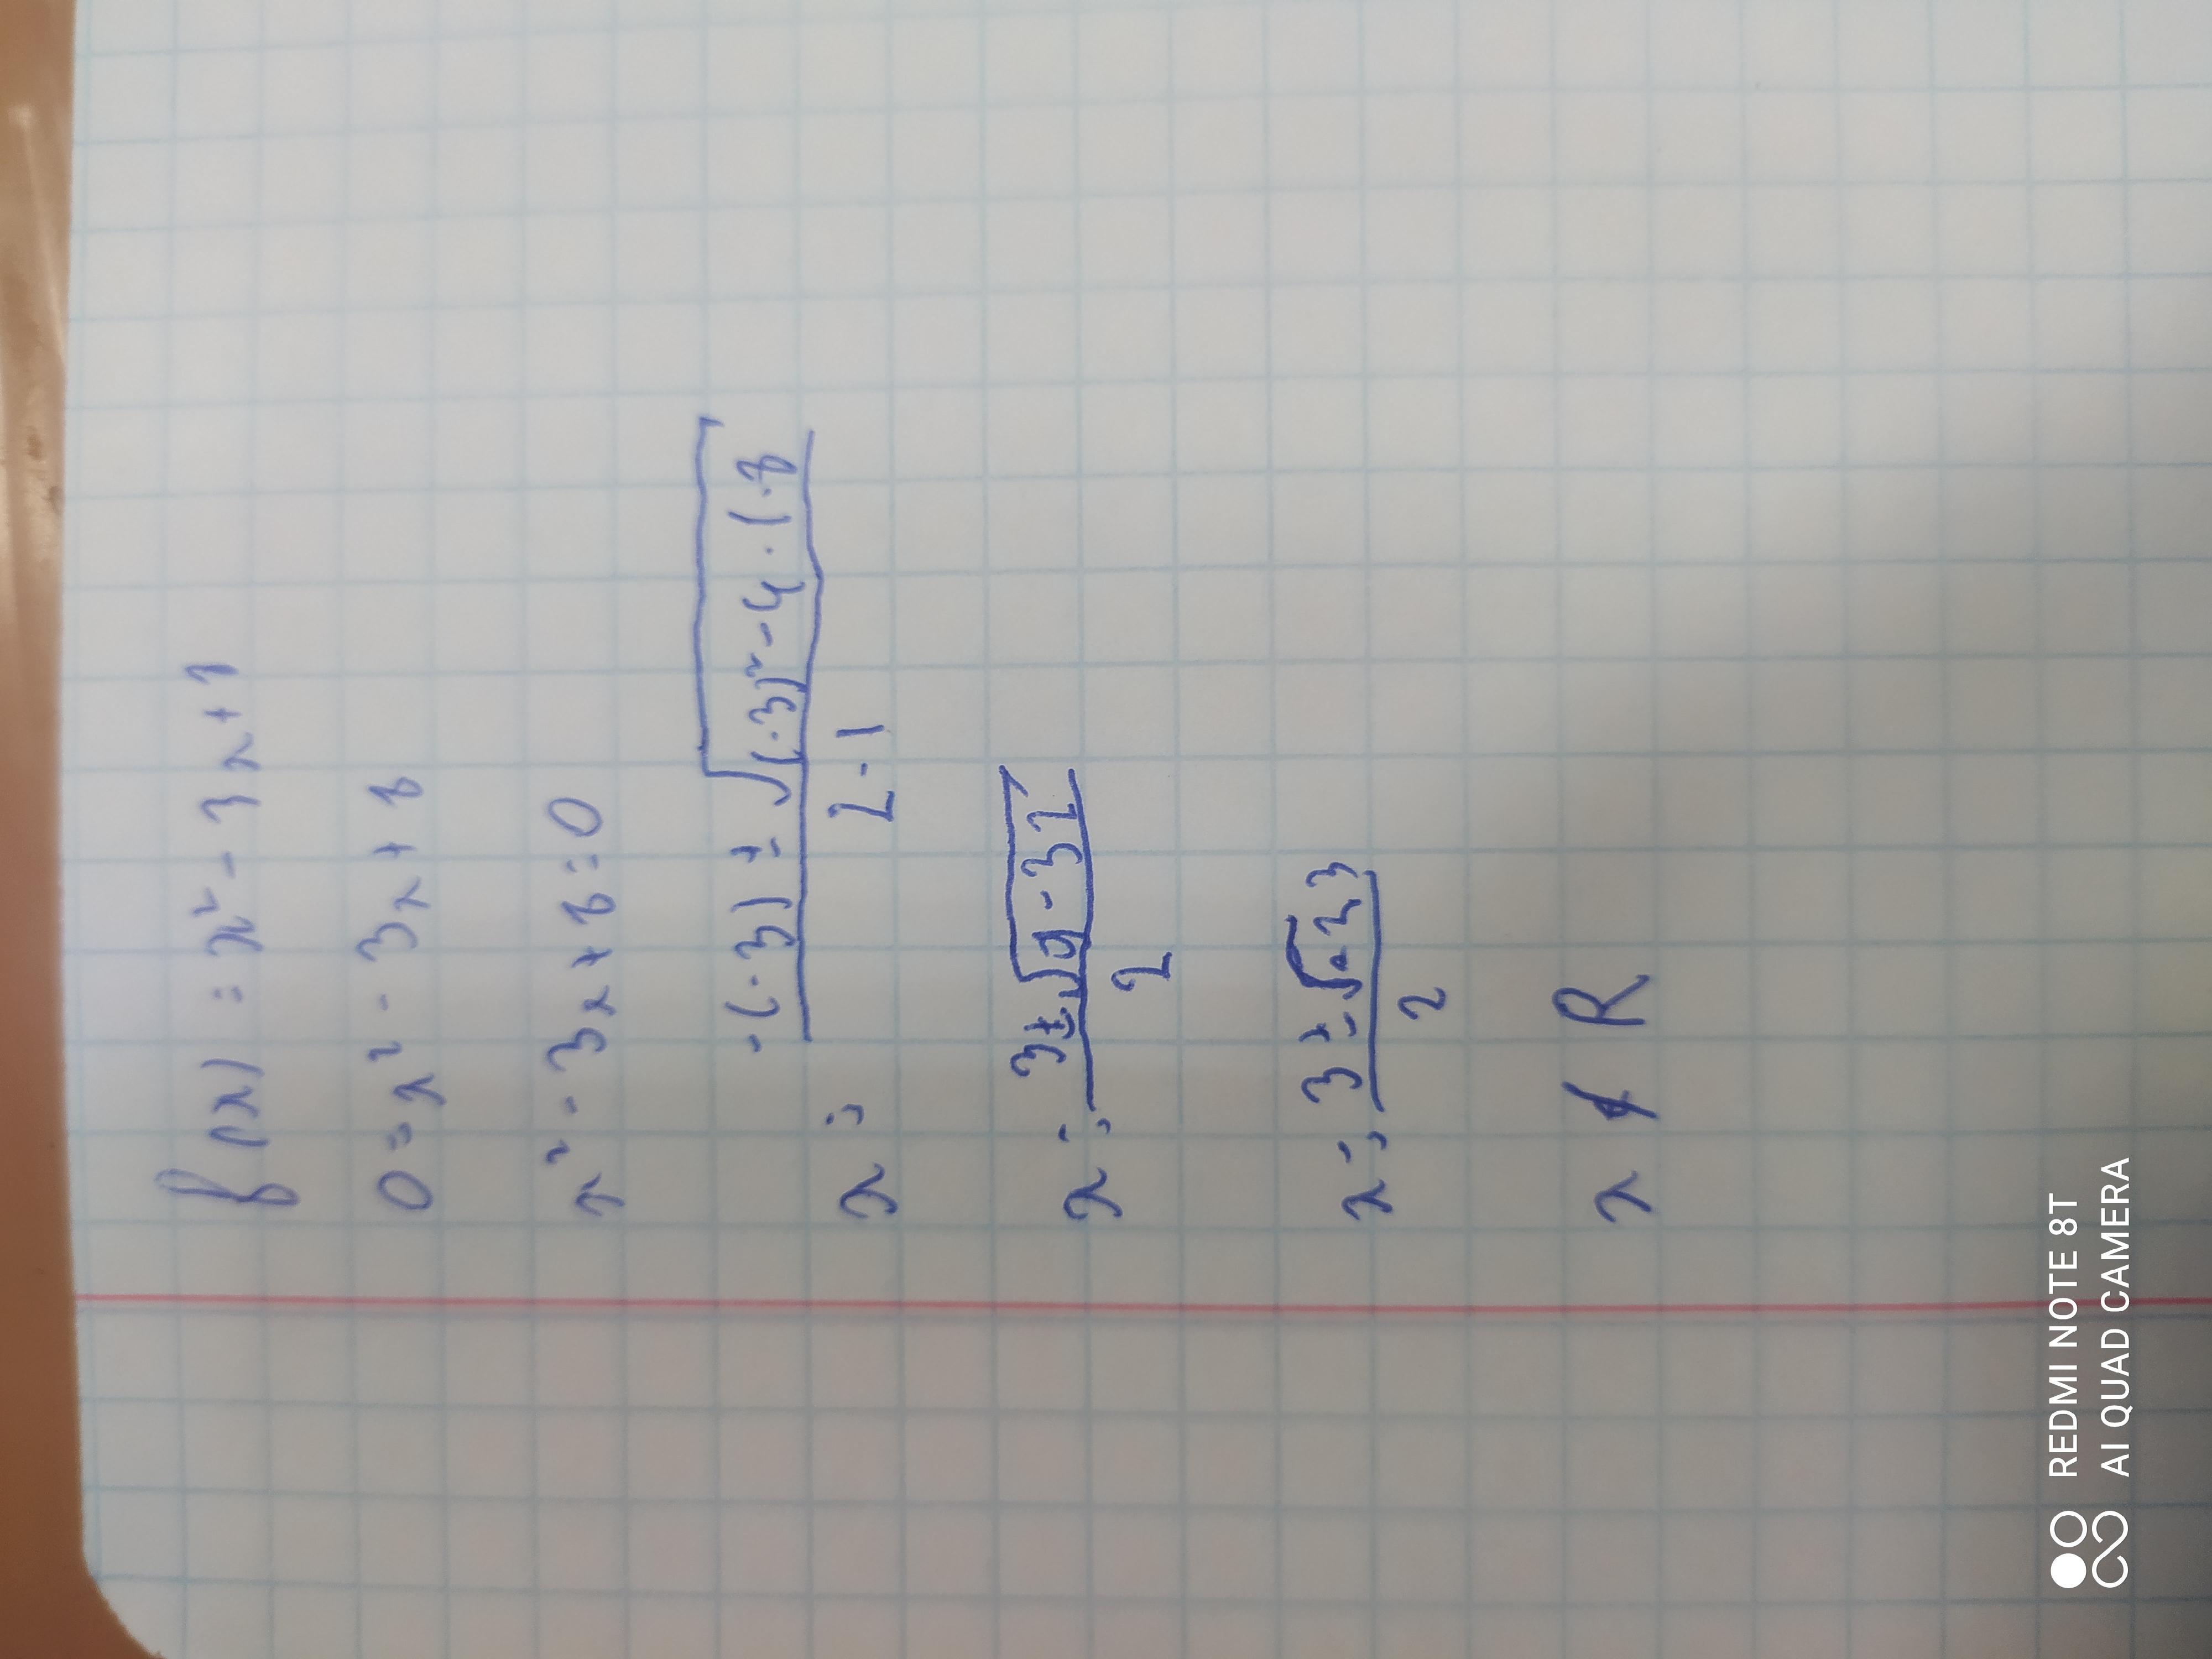 f(x) = x² - 3x + 1
0 = x² - 3x + 8
x² - 3x + 8 = 0
x = -(-3) ± √(-3)² - 4 · 1 · 8
2 · 1
x = 3 ± √9 - 32
2
x = 3 ± √-23
2
x ∉ R
REDMI NOTE 8T
AI QUAD CAMERA